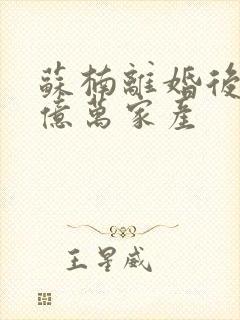 蘇楠離婚後
億萬家産
王星威